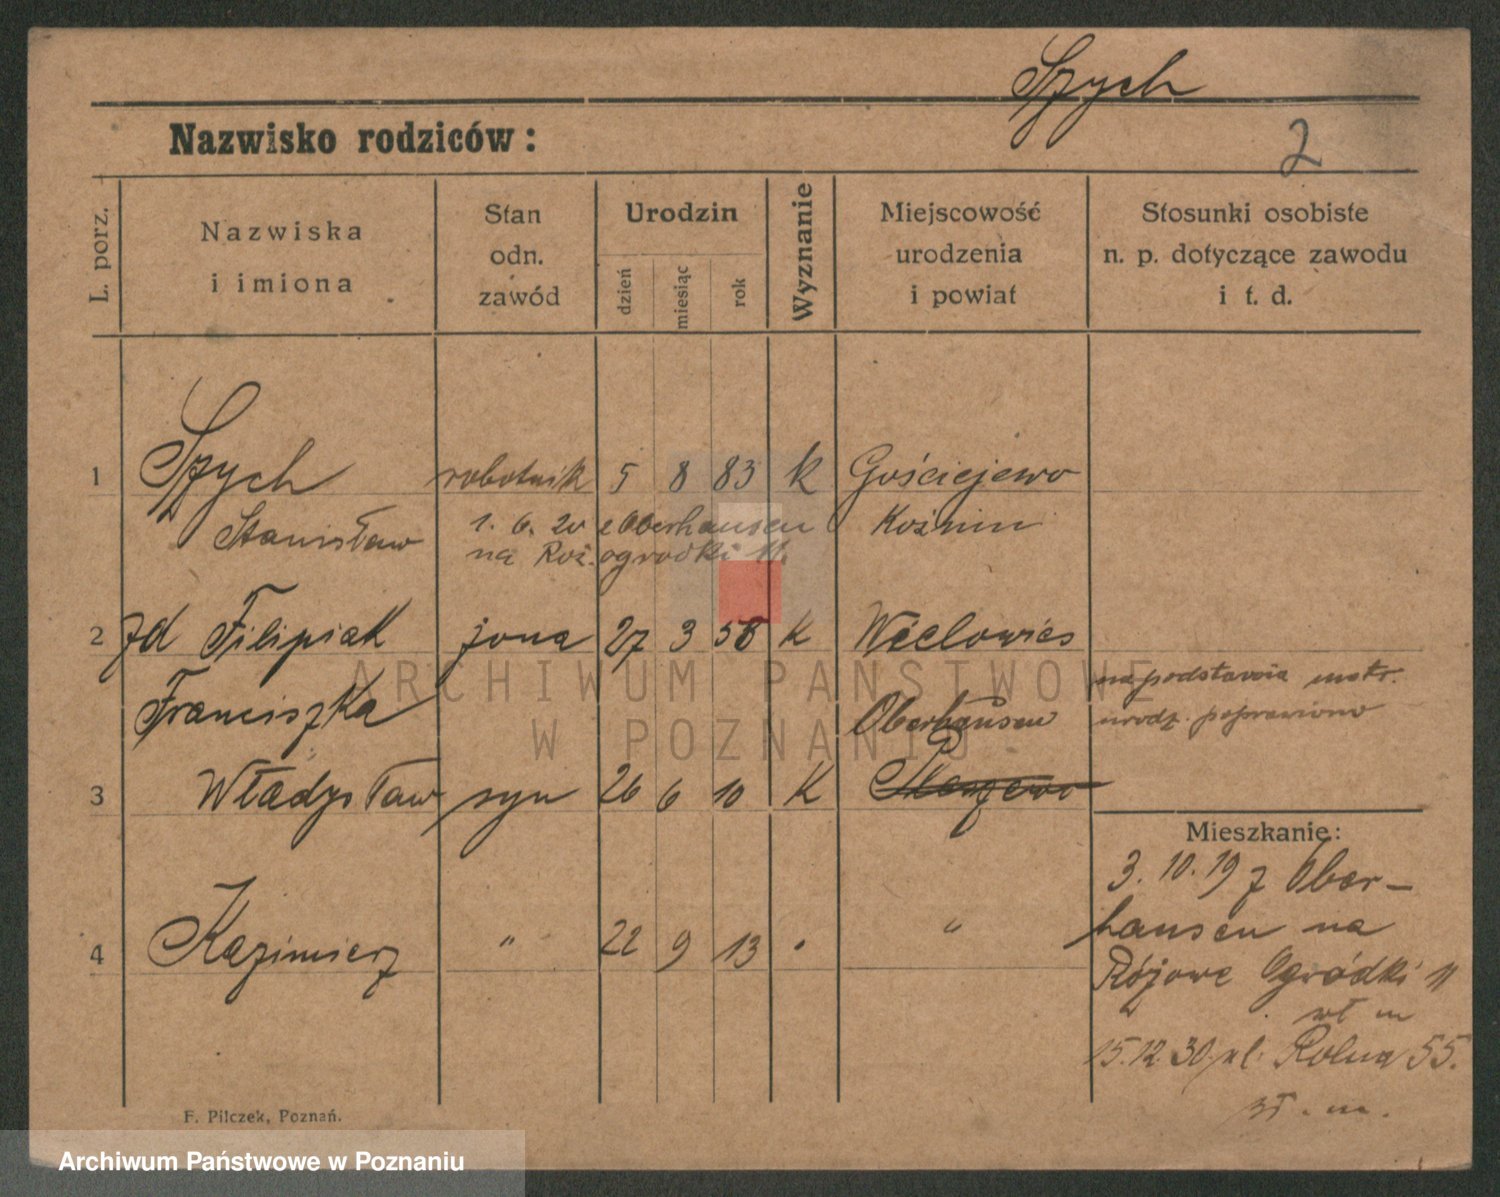 Szych
Nazwisko rodziców:
2
L. porz.
Nazwiska
i imiona
Stan
odn.
zawód
Urodzin
dzień
miesiąc
rok
Wyznanie
Miejscowość
urodzenia
i powiat
Stosunki osobiste
n. p. dotyczące zawodu
i t. d.
1 Szych robotnik 5 8 83 k Gościejewo
Stanisław 1. 6. 20 z Oberhausen Koźmin
na Roż. ogrodki 11.
2 zd Filipiak żona 27 3 K
Franciszka
na podstawie metr.
urodz. poprawiono
Oberhausen
3 Władysław syn 26 6 10 K
Mieszkanie:
3. 10. 19 z Ober-
hausen na
4 Kazimierz " 22 9 13 "
Różowe Ogródki 11
wł m
15.12.30 ul. Rolna 55.
wł. m.
F. Pilczek, Poznań.
ARCHIWUM PAŃSTWOWE
W POZNANIU
Archiwum Państwowe w Poznaniu